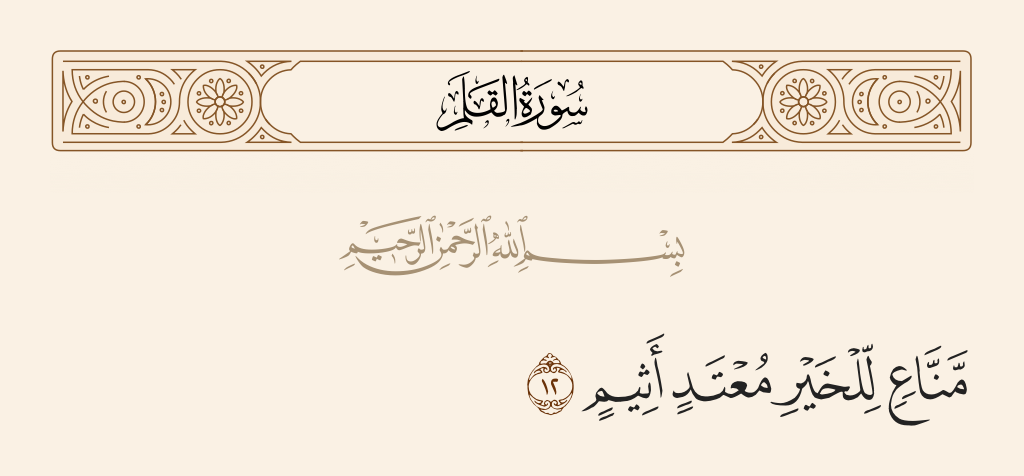 سُورَةُ القَلَمِ
بِسْمِ ٱللَّهِ ٱلرَّحْمَٰنِ ٱلرَّحِيمِ
مَّنَّاعٍ لِّلْخَيْرِ مُعْتَدٍ أَثِيمٍ ١٢